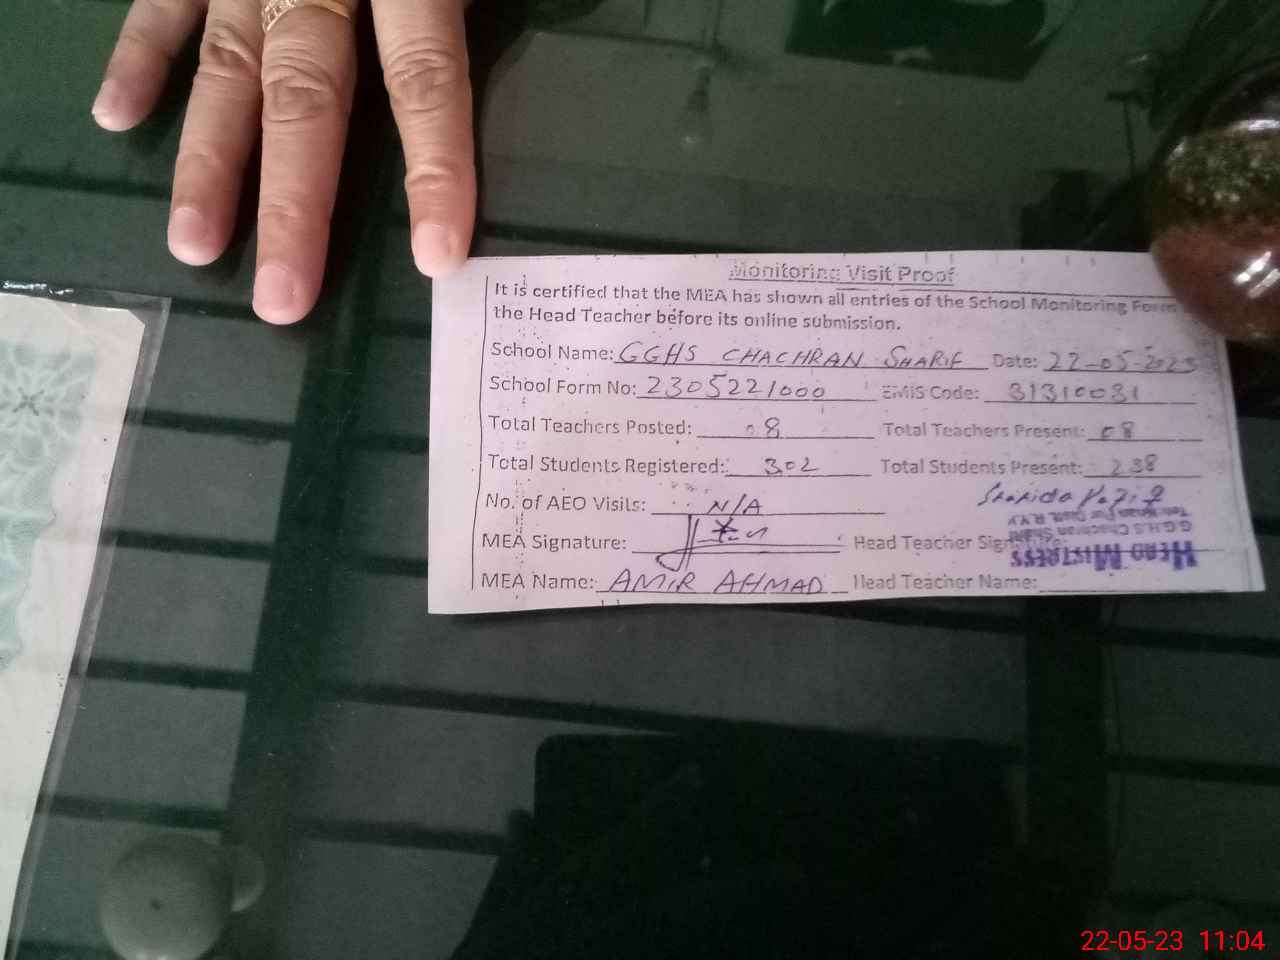 Monitoring Visit Proof
It is certified that the MEA has shown all entries of the School Monitoring Form
the Head Teacher before its online submission.
School Name: GGHS CHACHRAN SHARIF Date: 22-05-2023
School Form No: 2305221000 EMIS Code: 31310031
Total Teachers Posted: 08 Total Teachers Present: 08
Total Students Registered: 302 Total Students Present: 238
No. of AEO Visits: N/A
MEA Signature: Head Teacher Signature:
HEAD MISTRESS
G.G.H.S. Chachran Sharif
MEA Name: AMIR AHMAD Head Teacher Name:
22-05-23 11:04